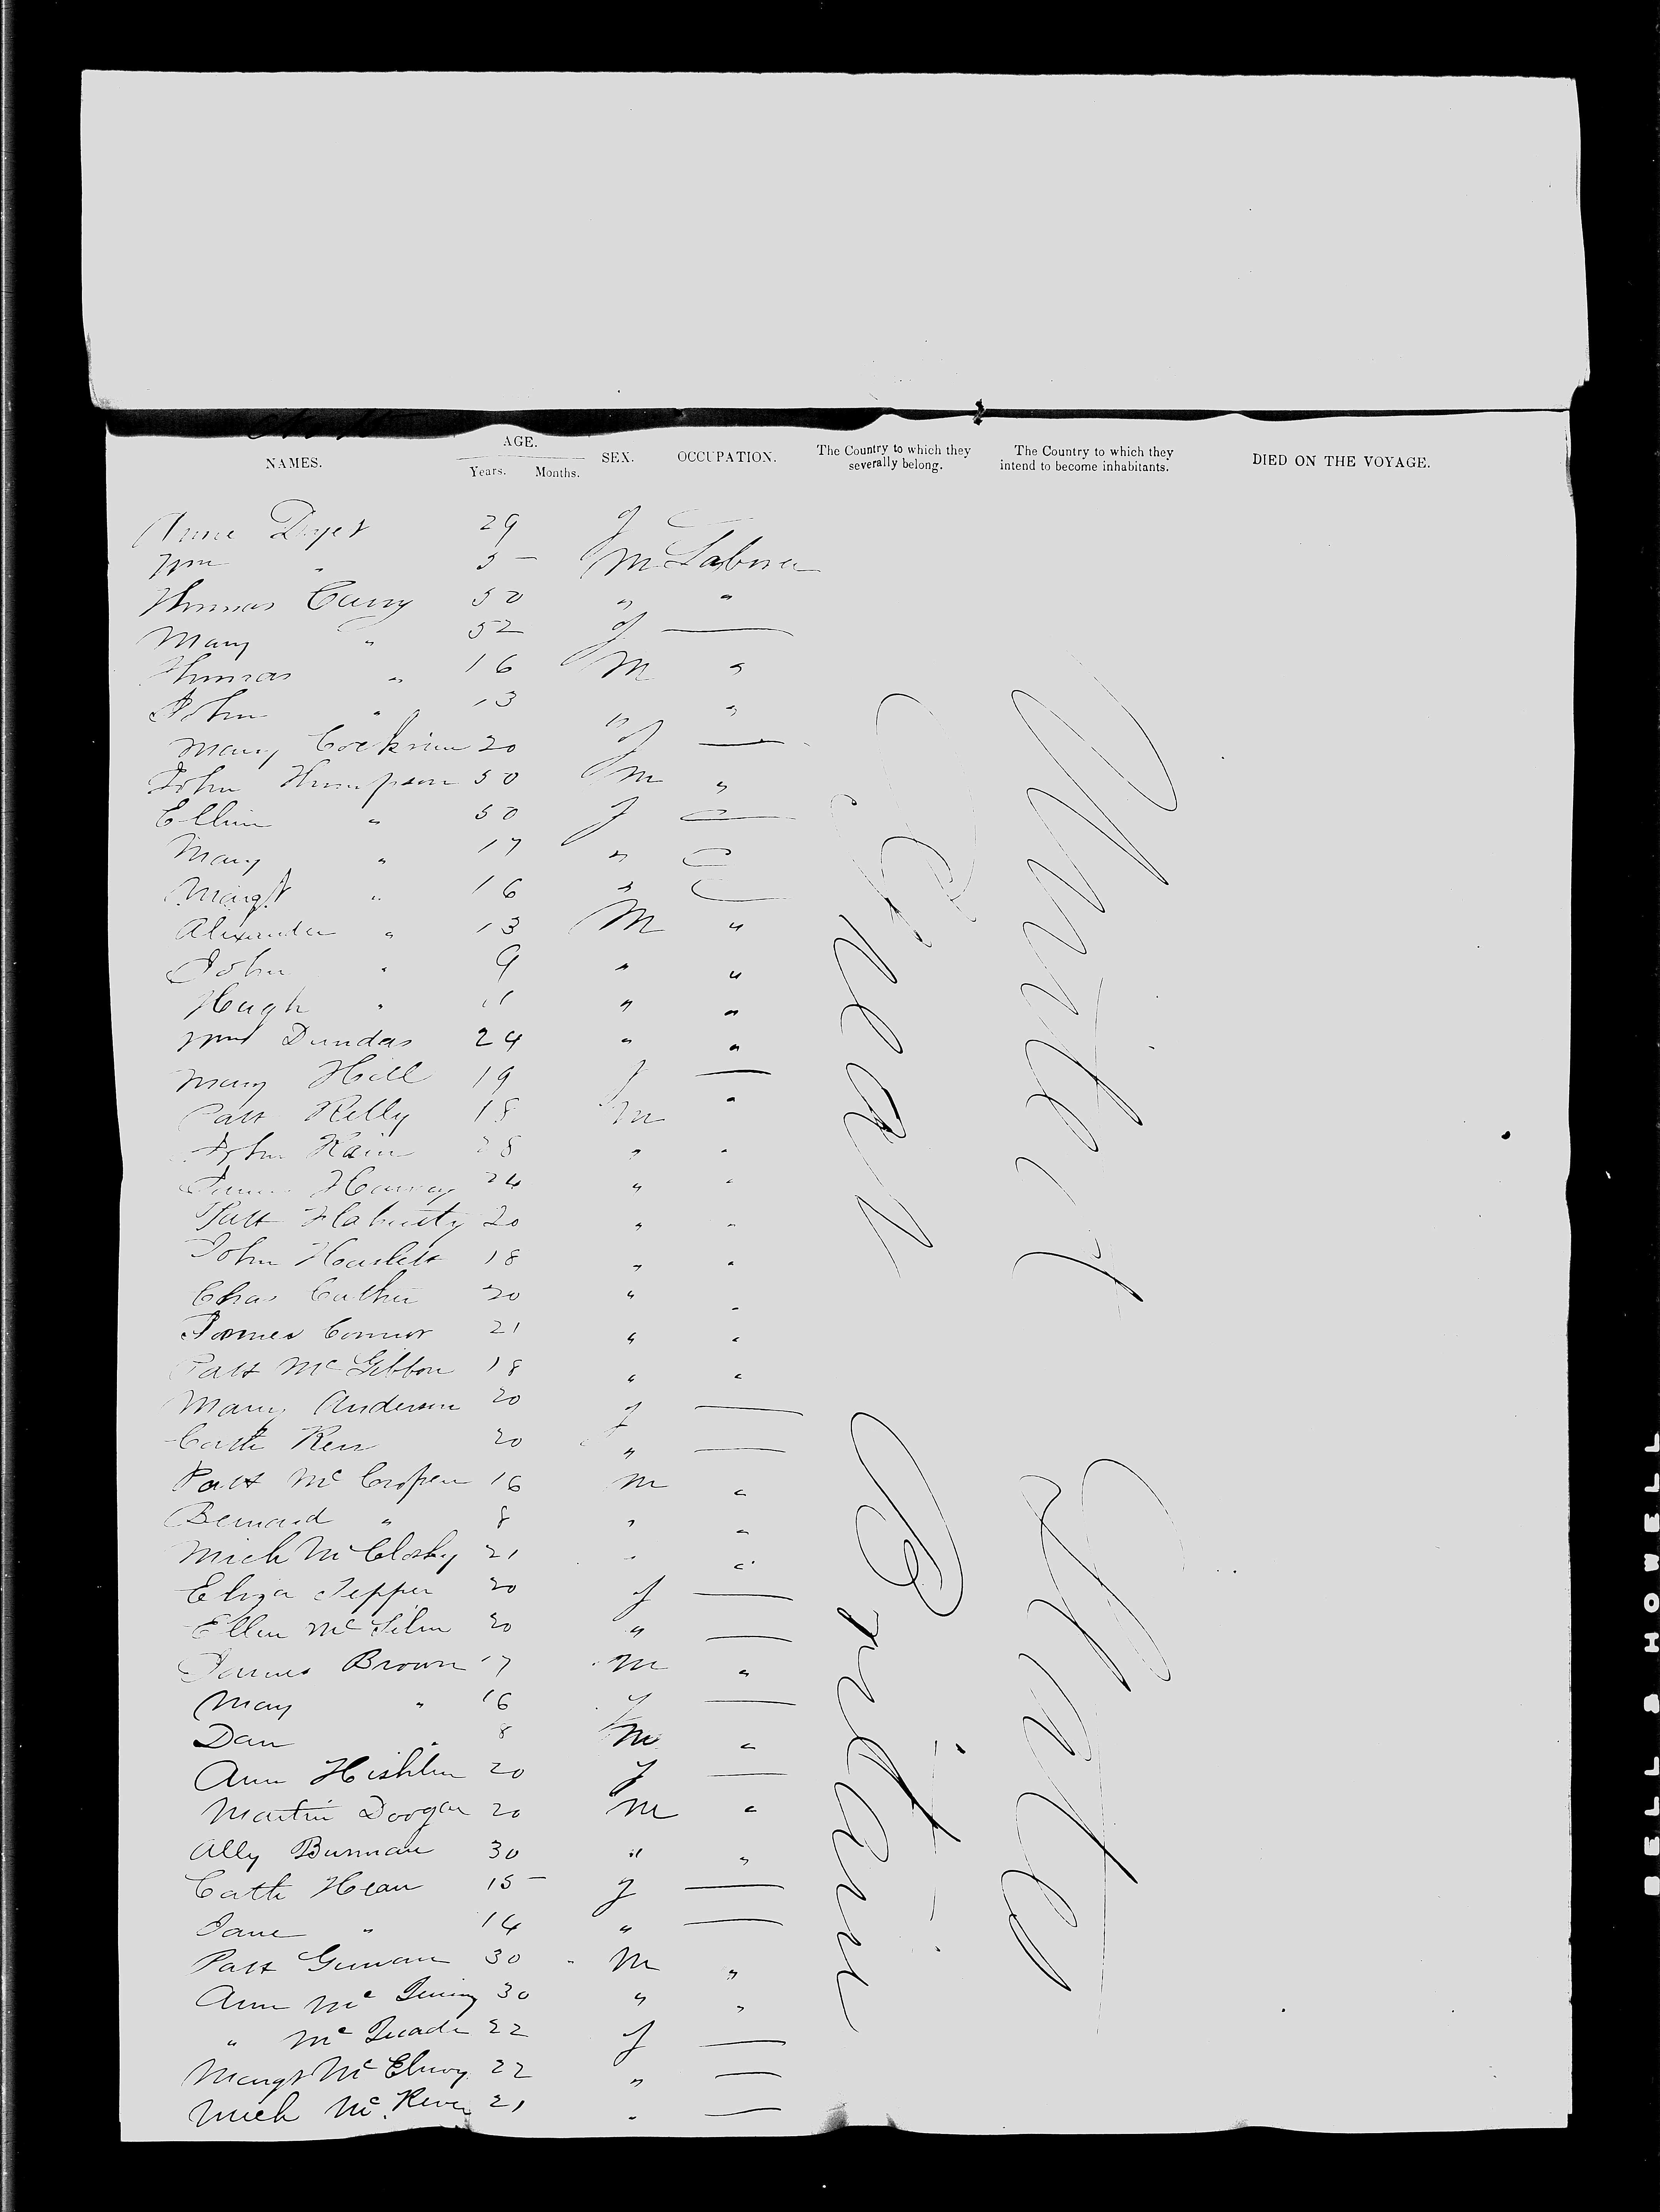 NAMES. AGE. Years. Months. SEX. OCCUPATION. The Country to which they severally belong. The Country to which they intend to become inhabitants. DIED ON THE VOYAGE.
Anne Dyer 29 f
Wm " 5 - M Laborer
Thomas Carry 50 " "
Mary " 52 f —
Thomas " 16 M "
John " 13 " "
Mary 20 f —
John Thompson 50 M "
Ellen " 50 f —
Mary " 17 "
Margt " 16 "
Alexander " 13 M "
John " 9 " "
Hugh " 11 " "
Wm Dundas 24 " "
Mary Hill 19 f —
Patt Kelly 18 M "
John Kain 28 " "
James Harvey 24 " "
Patt Flaherty 20 " "
John Haslett 18 " "
Chas 20 " "
James Connor 21 " "
Patt McGibbon 18 " "
Mary Anderson 20 f —
Cath Kerr 20 " —
Patt Mc 16 M "
Bernard " 8 " "
Mich McClosky 21 " "
Eliza 20 f —
Ellen 20 " —
James Brown 17 M "
Mary " 16 f —
Dan " 8 M "
Ann 20 f —
Martin Doogan 20 M "
Ally 30 " "
Cath 15 - f —
Jane " 14 " —
Patt 30 M "
Ann Mc 30 " "
" Mc Quade 22 f —
Margt McElroy 22 " —
Mich Mc 21 " —
Great Britain
United States
BELL & HOWELL